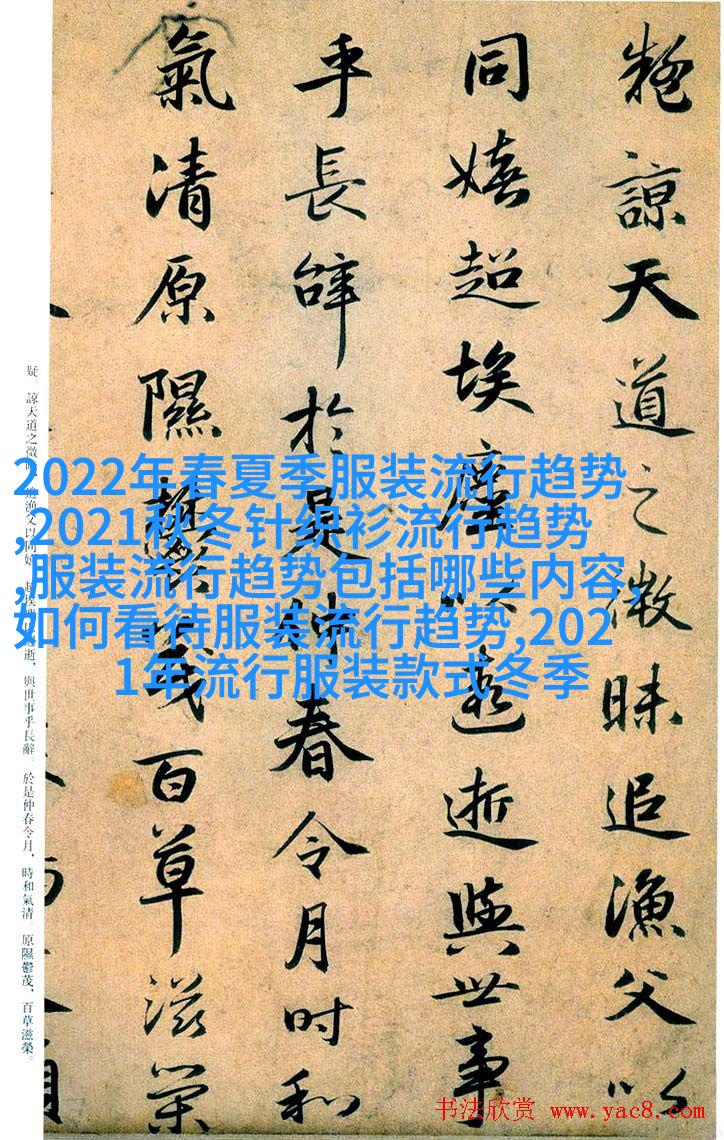 疑諒天道之微昧追漁父以
同嬉超埃塵以遐逝與世事
乎長辭於是仲春令月時和
氣清原隰鬱茂百草滋榮
疑。諒天道之微昧,追漁父以同嬉,超埃塵以遐逝,與世事乎長辭。於是仲春令月,時和氣清。原隰鬱茂,百草滋榮。
2022年春夏季服装流行趋势
,2021秋冬针织衫流行趋势
,服装流行趋势包括哪些内容,
如何看待服装流行趋势,202
1年流行服装款式冬季
书法欣赏 www.yac8.com